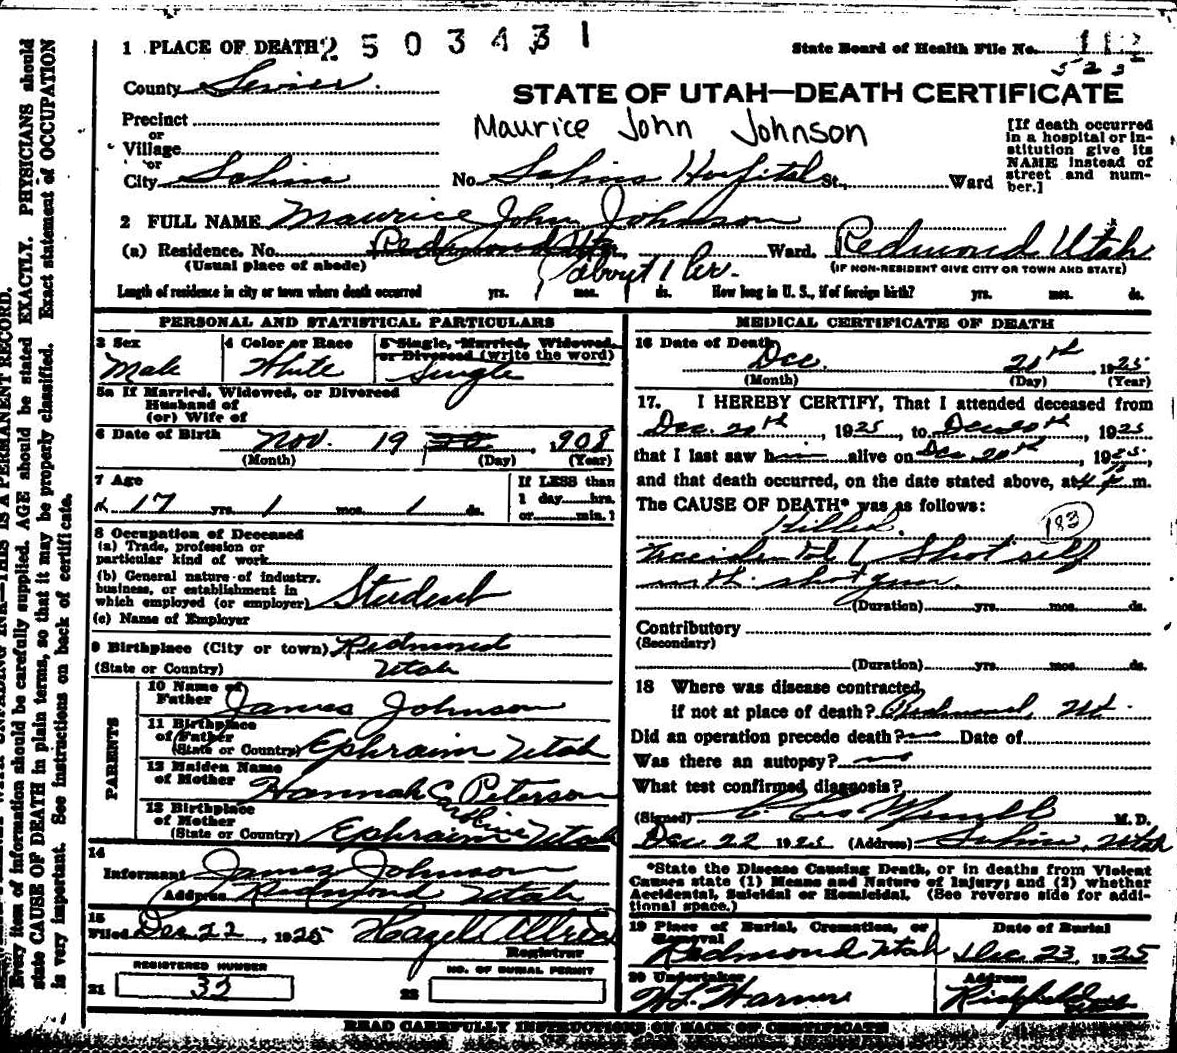 1 PLACE OF DEATH 2503431
State Board of Health File No. 112
523
County Sevier.
STATE OF UTAH—DEATH CERTIFICATE
Precinct
or
Village
or
City Salina
Maurice John Johnson
No. Salina Hospital St., Ward
[If death occurred
in a hospital or in-
stitution give its
NAME instead of
street and num-
ber.]
2 FULL NAME Maurice John Johnson
(a) Residence. No. Redmond Utah Ward. Redmond Utah
(Usual place of abode)
(IF NON-RESIDENT GIVE CITY OR TOWN AND STATE)
about 1 hr.
Length of residence in city or town where death occurred yrs. mos. ds. How long in U. S., if of foreign birth? yrs. mos. ds.
PERSONAL AND STATISTICAL PARTICULARS
3 Sex
Male
4 Color or Race
White
5 Single, Married, Widowed,
or Divorced (write the word)
Single
5a If Married, Widowed, or Divorced
Husband of
(or) Wife of
6 Date of Birth Nov. 19 20 908
(Month) (Day) (Year)
7 Age
17 yrs. 1 mos. 1 ds.
If LESS than
1 day hrs.
or min.?
8 Occupation of Deceased
(a) Trade, profession or
particular kind of work
(b) General nature of industry.
business, or establishment in
which employed (or employer) Student
(c) Name of Employer
9 Birthplace (City or town) Redmond
(State or Country) Utah
PARENTS
10 Name of
Father James Johnson
11 Birthplace
of Father
(State or Country) Ephraim Utah
12 Maiden Name
of Mother Hannah Caroline Peterson
13 Birthplace
of Mother
(State or Country) Ephraim Utah
14
Informant James Johnson
Address Redmond Utah
15
Filed Dec 22, 1925 Hazel Allred
Registrar
REGISTERED NUMBER
21 32
NO. OF BURIAL PERMIT
22
MEDICAL CERTIFICATE OF DEATH
16 Date of Death Dec. 20th, 1925
(Month) (Day) (Year)
17. I HEREBY CERTIFY, That I attended deceased from
Dec. 20th, 1925, to Dec 20th, 1925
that I last saw h alive on Dec 20th, 1925,
and that death occurred, on the date stated above, at 4 P m.
The CAUSE OF DEATH* was as follows:
Killed. 183
Accidental, Shot self
with shot gun.
(Duration) yrs. mos. ds.
Contributory
(Secondary)
(Duration) yrs. mos. ds.
18 Where was disease contracted,
if not at place of death? Redmond, Ut.
Did an operation precede death? no Date of
Was there an autopsy? no
What test confirmed diagnosis?
(Signed) M. D.
Dec 22 1925 (Address) Salina, Utah
*State the Disease Causing Death, or in deaths from Violent
Causes state (1) Means and Nature of Injury; and (2) whether
Accidental, Suicidal or Homicidal. (See reverse side for addi-
tional space.)
19 Place of Burial, Cremation, or
Removal
Redmond Utah
Date of Burial
Dec 23, 1925
20 Undertaker
Address
READ CAREFULLY INSTRUCTIONS ON BACK OF CERTIFICATE
Every item of information should be carefully supplied. AGE should be stated EXACTLY. PHYSICIANS should
state CAUSE OF DEATH in plain terms, so that it may be properly classified. Exact statement of OCCUPATION
is very important. See instructions on back of certificate.
THIS IS A PERMANENT RECORD.